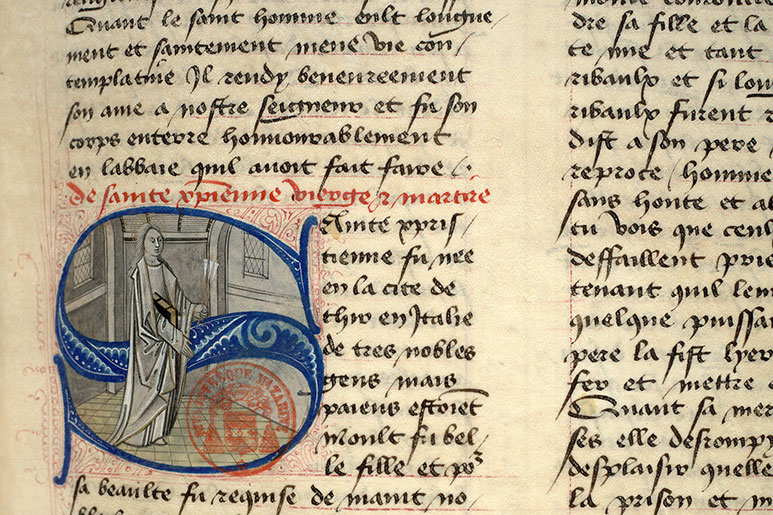 Quant le saint homme eult longue
ment et saintement mené vie con
templatiue Il rendy beneureement
son ame a nostre seigneur et fu son
corps enterre honnourablement
en labbaie quil auoit fait faire
de sainte xpienne vierge & martire
SAinte xpris
tienne fu nee
en la cite de
thir en Italie
de tres nobles
gens mais
paiens estoiēt
Moult fu bel
le fille et po²
sa beaulte fu requise de maint no
dre sa fille et la
te nue et tant
ribaulx et si lou
ribaulx furent
dist a son pere
reproce homme
sans honte et a
tu vois que ceul
deffaillent prie
tenant quil len
quelque puissa
pere la fist lyer
fer et mettre
Quant sa mer
ses elle desrompy
desplaisir quelle
la prison et m